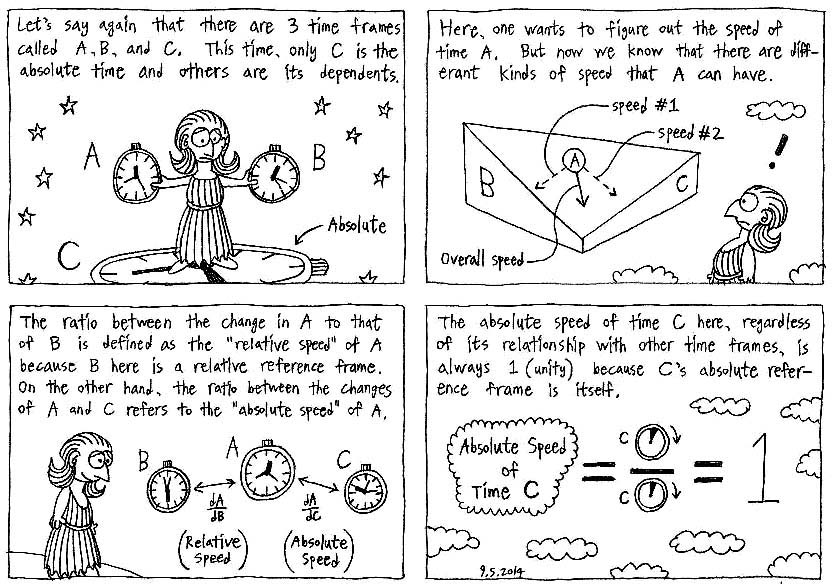 Let's say again that there are 3 time frames
called A, B, and C. This time, only C is the
absolute time and others are its dependents.
A
B
C
Absolute
Here, one wants to figure out the speed of
time A. But now we know that there are diff-
erant kinds of speed that A can have.
speed #1
speed #2
A
B
C
Overall speed
!
The ratio between the change in A to that
of B is defined as the "relative speed" of A
because B here is a relative reference frame.
On the other hand, the ratio between the changes
of A and C refers to the "absolute speed" of A.
B
A
C
dA
dB
dA
dC
(Relative
Speed)
(Absolute
Speed)
The absolute speed of time C here, regardless
of its relationship with other time frames, is
always 1 (unity) because C's absolute refer-
ence frame is itself.
Absolute Speed
of
Time C
=
C
C
= 1
9.5.2014